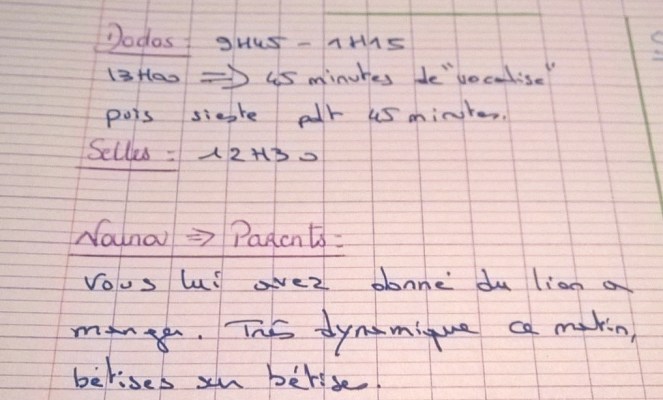 Dodos : 9H45 - 11H15
13H00 => 45 minutes de "vocalise"
puis sieste pdt 45 minutes.
Selles : 12H30
Nauna => Parents :
Vous lui avez donné du lion a
manger. Très dynamique ce matin,
bêtises sur bêtises.